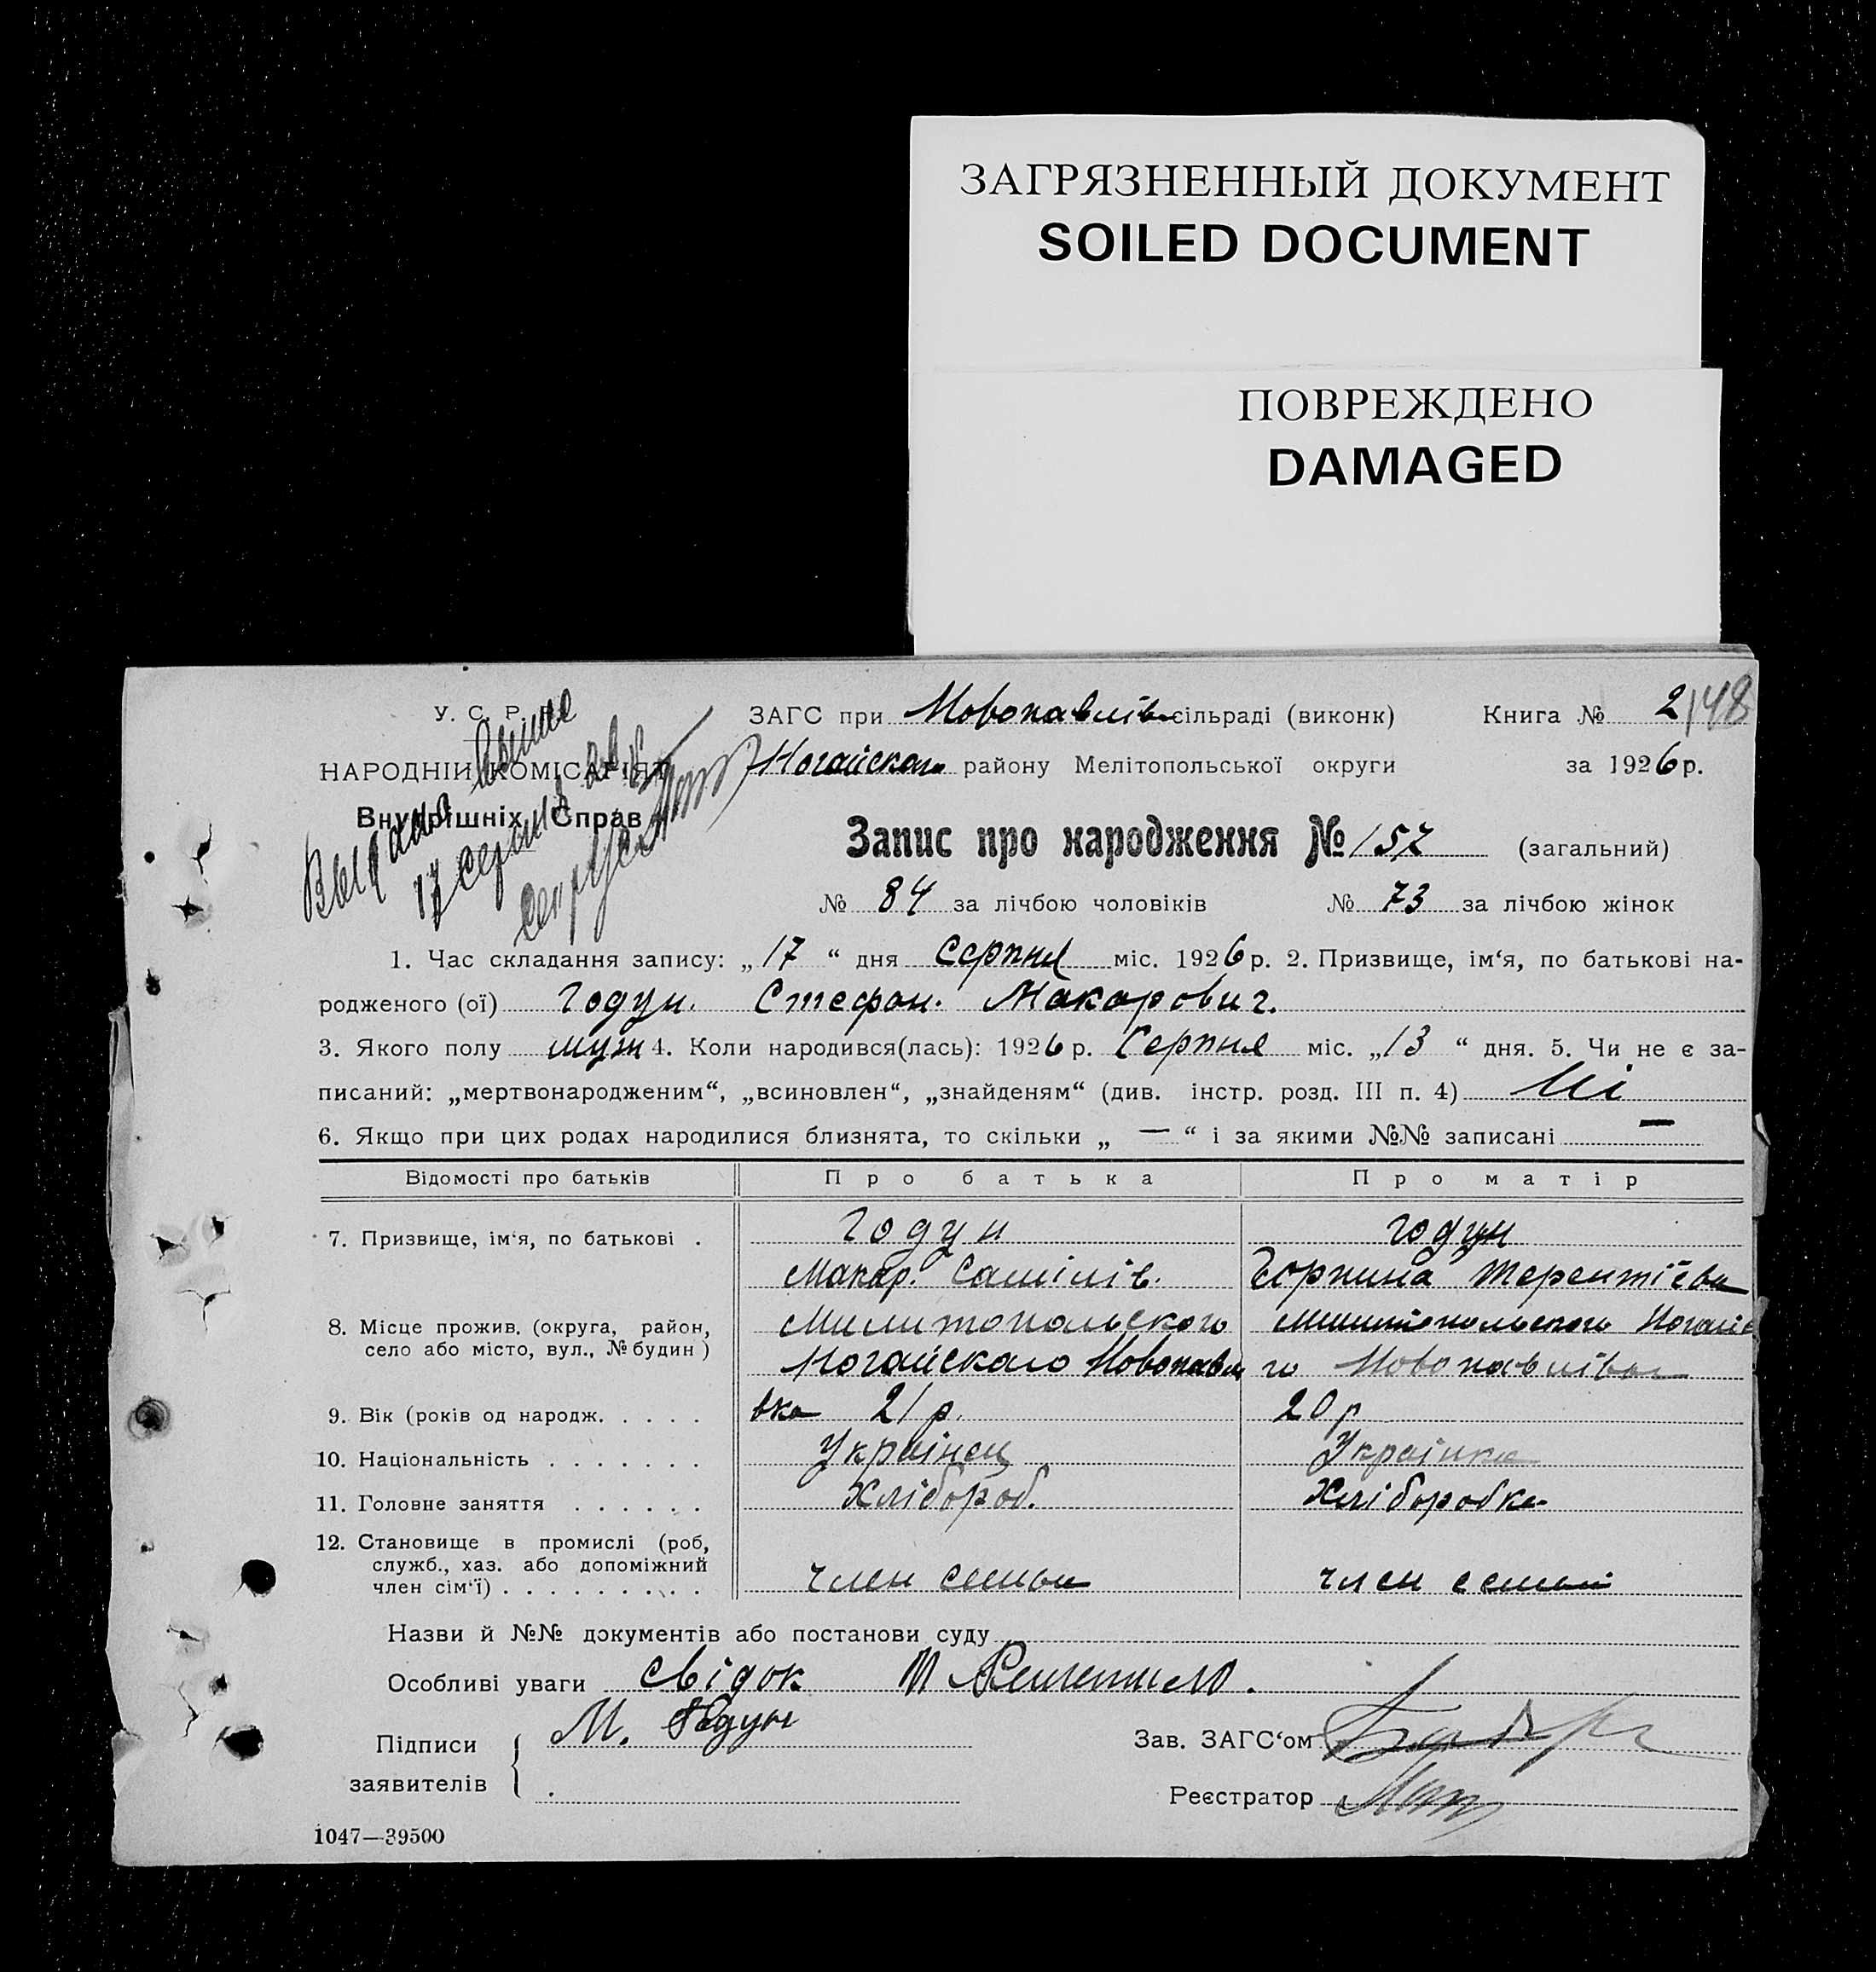 ЗАГРЯЗНЕННЫЙ ДОКУМЕНТ
SOILED DOCUMENT
ПОВРЕЖДЕНО
DAMAGED
У. С. Р. Р.
НАРОДНІЙ КОМІСАРІЯТ
Внутрішніх Справ
ЗАГС при Новопавлівск сільраді (виконк) Книга № 2 148
Ногайскаго району Мелітопольської округи за 1926 р.
Запис про народження № 157 (загальний)
№ 84 за лічбою чоловіків № 73 за лічбою жінок
1. Час складання запису: „17“ дня Серпня міс. 1926 р. 2. Призвище, ім‘я, по батькові на-
родженого (ої) Годун. Стефан. Макарович.
3. Якого полу муж 4. Коли народився(лась): 1926 р. Серпня міс. „13“ дня. 5. Чи не є за-
писаний: „мертвонародженим“, „всиновлен“, „знайденям“ (див. інстр. розд. III п. 4) Ні
6. Якщо при цих родах народилися близнята, то скільки „ — “ і за якими №№ записані —
Відомості про батьків Про батька Про матір
7. Призвище, ім‘я, по батькові . Годун годун
Макар. Самілів. Горпина Терентіївна
8. Місце прожив. (округа, район, село або місто, вул., № будин ) Милитопольского
Ногайскаго Новопавлі го Новопавлівка
9. Вік (років од народж. . . . . вка 21 р. 20 р
10. Національність . . . . . . . Українец Українка
11. Головне заняття . . . . . . Хлібороб. Хліборобка
12. Становище в промислі (роб, служб., хаз. або допоміжний член сім‘ї) . . . . . . . . . член семьи член семьи
Назви й №№ документів або постанови суду
Особливі уваги свідок
Підписи заявителів М. Годун
Зав. ЗАГС‘ом
Реєстратор
1047—39500